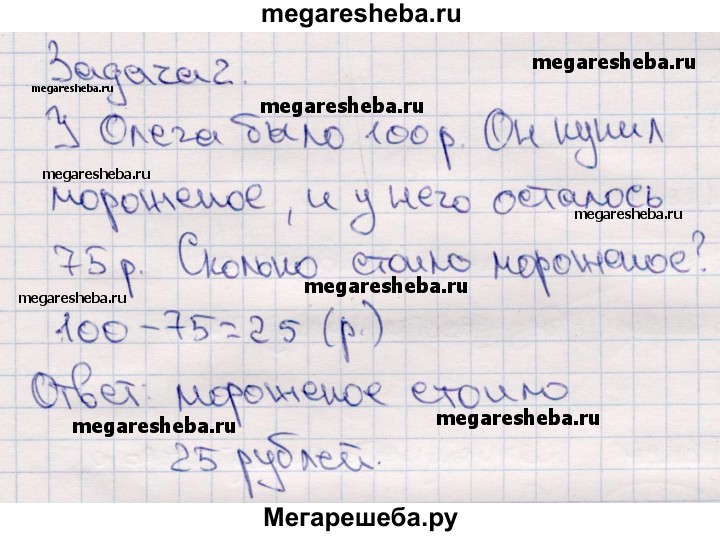 megaresheba.ru
Задача 2.
megaresheba.ru
megaresheba.ru
megaresheba.ru
У Олега было 100 р. Он купил
megaresheba.ru
мороженое, и у него осталось
megaresheba.ru
75 р. Сколько стоило мороженое?
megaresheba.ru
megaresheba.ru
100 - 75 = 25 (р.)
Ответ: мороженое стоило
megaresheba.ru
megaresheba.ru
25 рублей.
Мегарешеба.ру